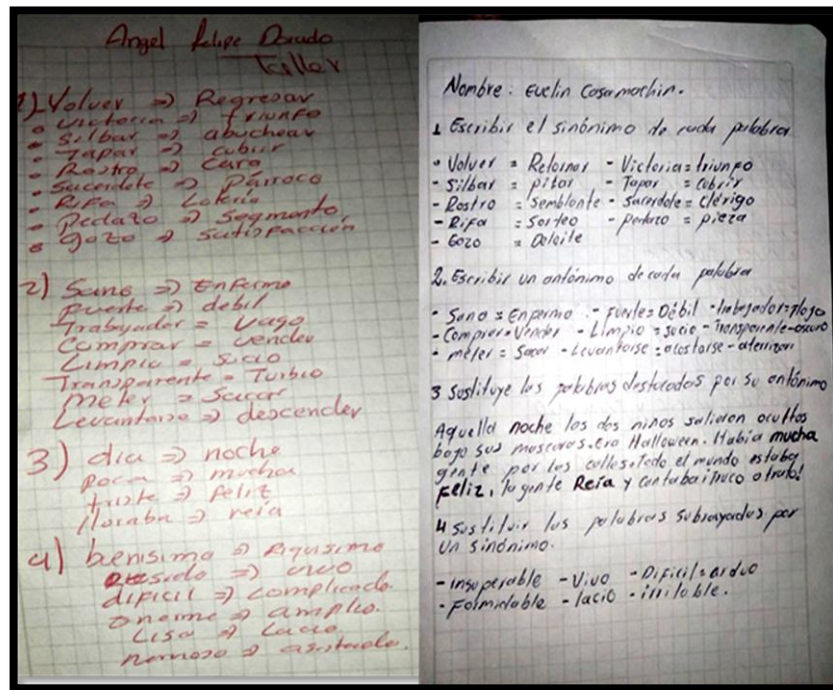 Angel Felipe Dorado
Taller
1) Volver => Regresar
• victoria => triunfo
• Silbar => abuchear
• Tapar => cubrir
• Rostro => Cara
• Sacerdote => Párroco
• Rifa => Lotería
• Pedazo => Segmento
• gozo => satisfacción
2) Sano => Enfermo
fuerte => debil
Trabajador = Vago
Comprar = vender
Limpio = sucio
Transparente = Turbio
Meter = Sacar
Levantarse => descender
3) dia => noche
poca => mucha
triste => feliz
lloraba => reía
4) buenisima => Riquisimo
=> vivo
dificil => complicado.
enorme => amplio.
Liso => Lacio
nervioso => asustado.
Nombre: Evelin Casamachin.
1 Escribir el sinónimo de cada palabra
• Volver = Retornar - Victoria = triunfo
- Silbar = pitar - Tapar = cubrir
- Rostro = Semblante - sacerdote = Clérigo
- Rifa = Sorteo - pedazo = pieza
- Gozo = Deleite
2. Escribir un antónimo de cada palabra
- Sano = Enfermo - Fuerte = Débil - trabajador = flojo
- Comprar = Vender - Limpio = sucio - Transparente - oscuro
• meter = Sacar - Levantarse = acostarse - aterrizar
3 Sustituye las palabras destacadas por su antónimo
Aquella noche los dos niños salieron ocultos
bajo sus mascaras. era Halloween. Había mucha
gente por las calles. todo el mundo estaba
Feliz, la gente Reía y cantaba ¡truco o trato!
4 Sustituir las palabras subrayadas por
un sinónimo.
- insuperable - Vivo - Dificil = arduo
- Formidable - lacio - irritable.